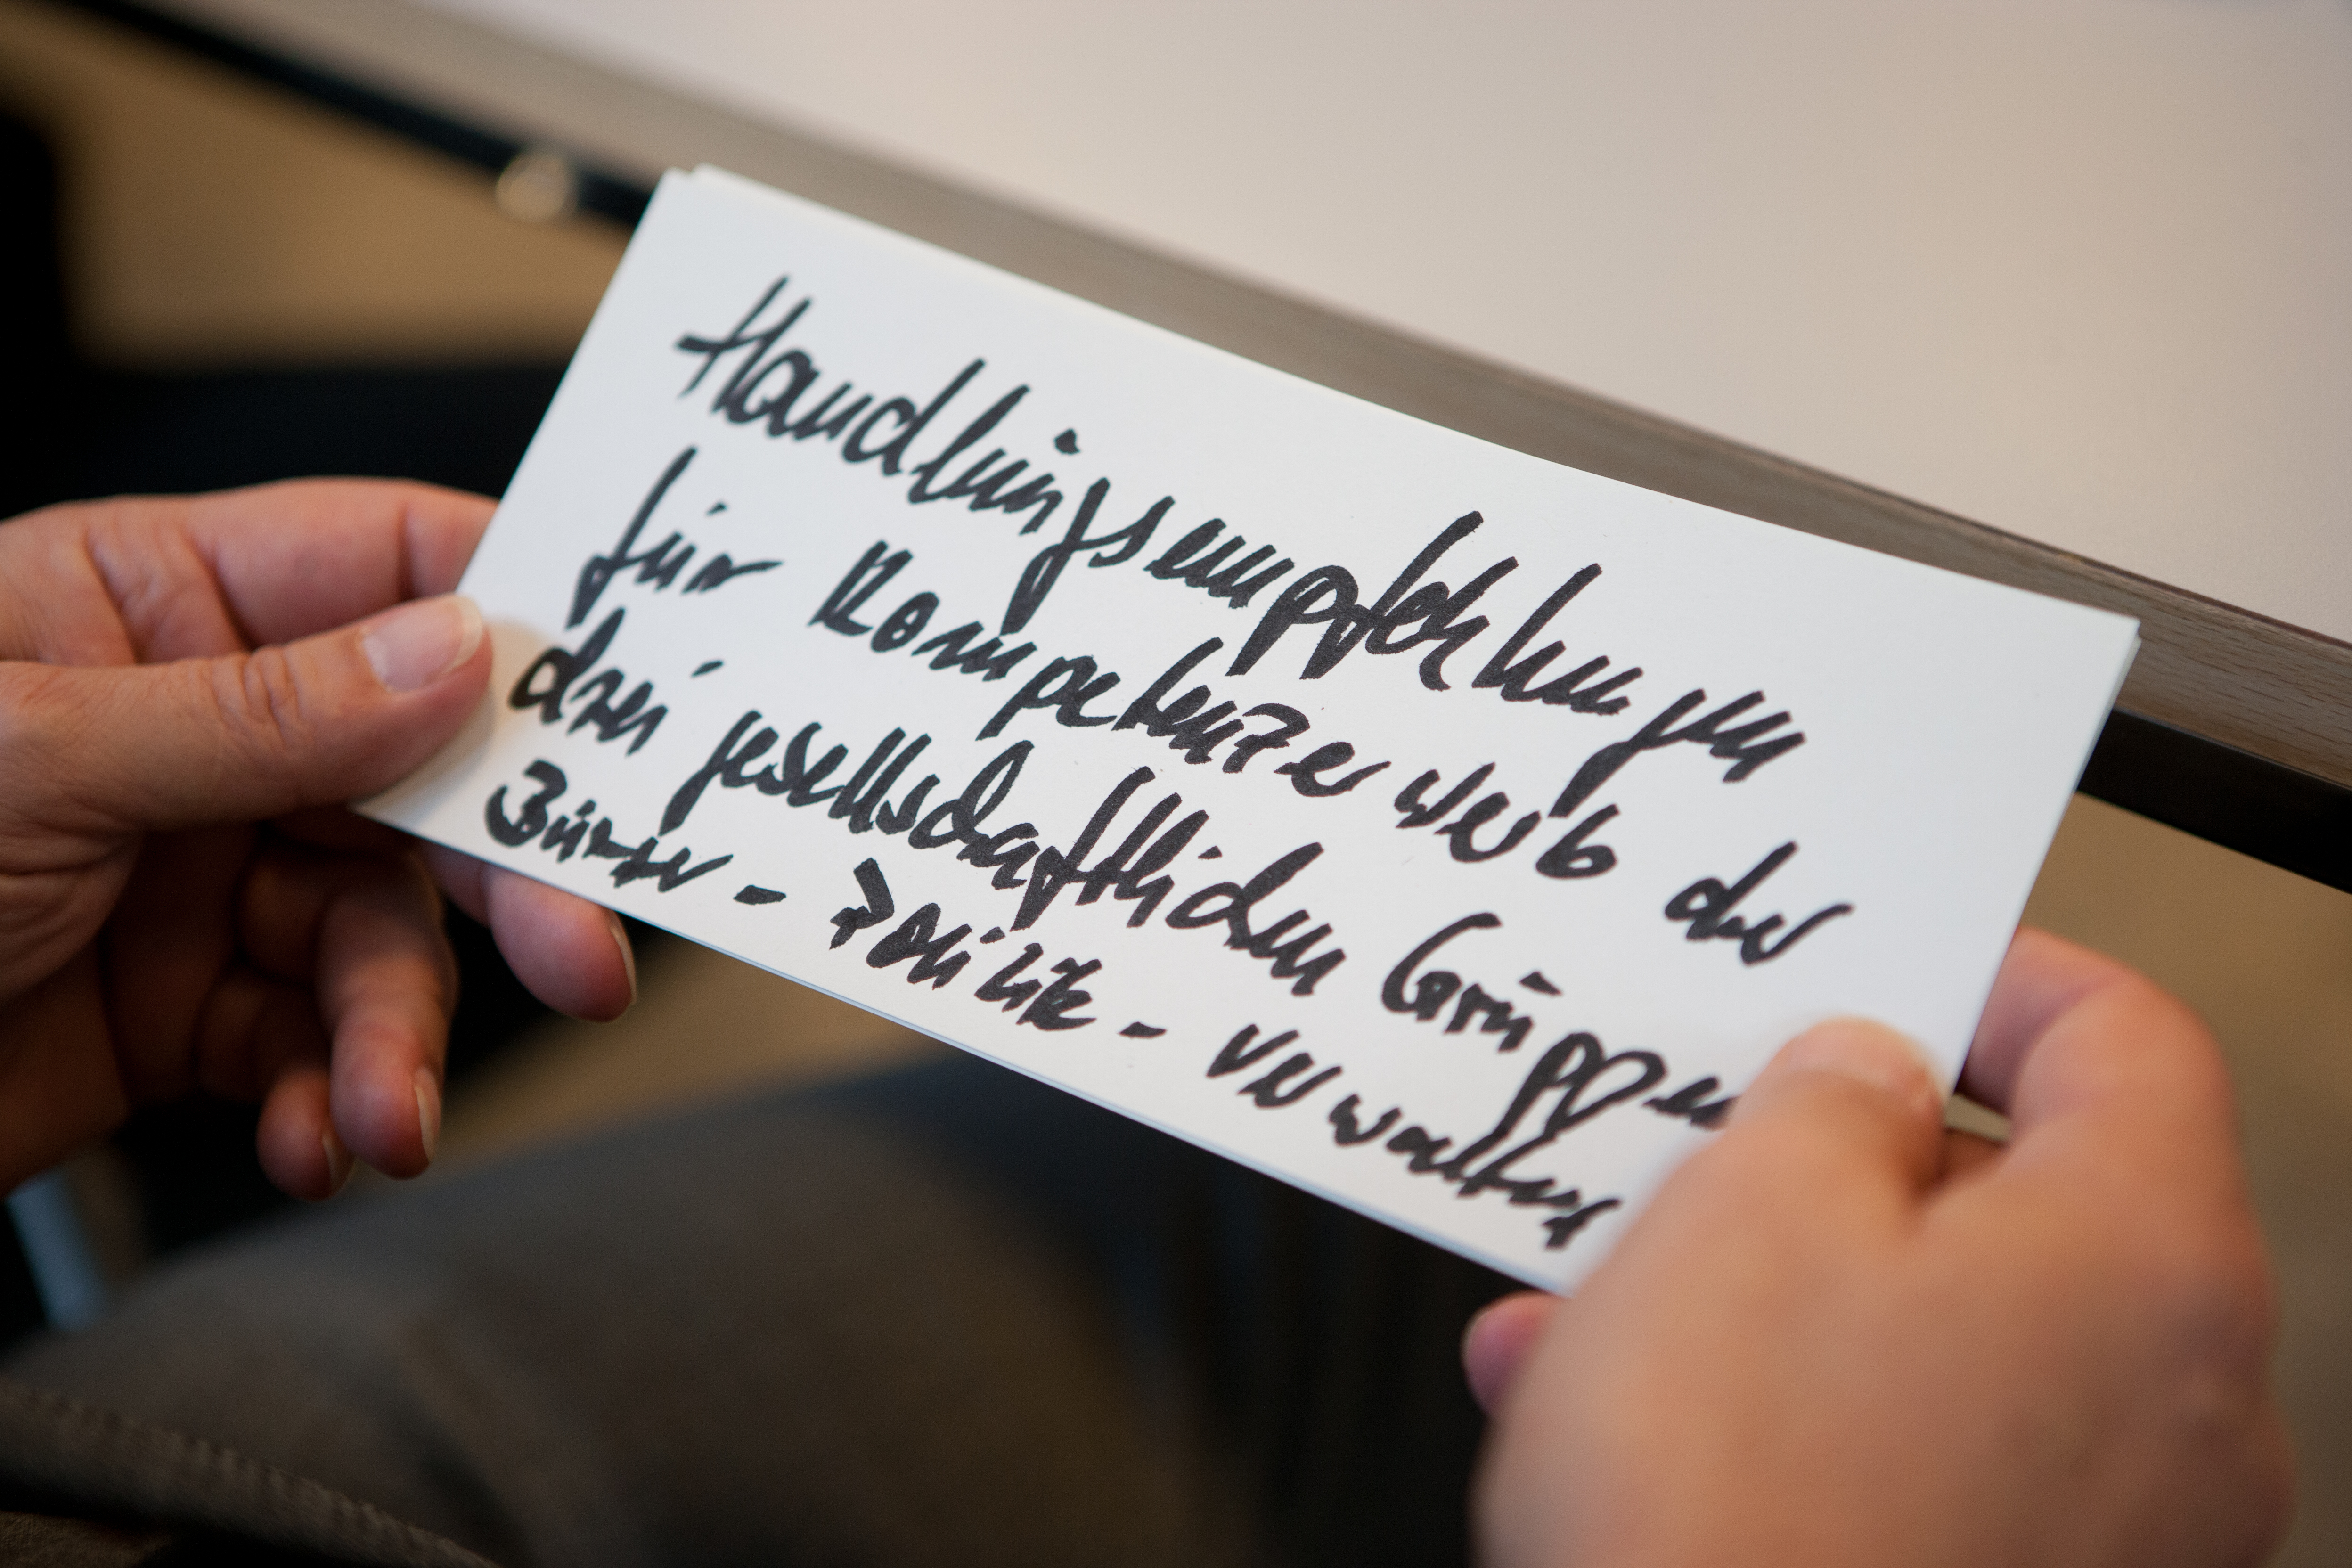 Handlungsempfehlungen
für Kompetenzerwerb der
drei gesellschaftlichen Gruppen
Bürger - Politik - Verwaltung